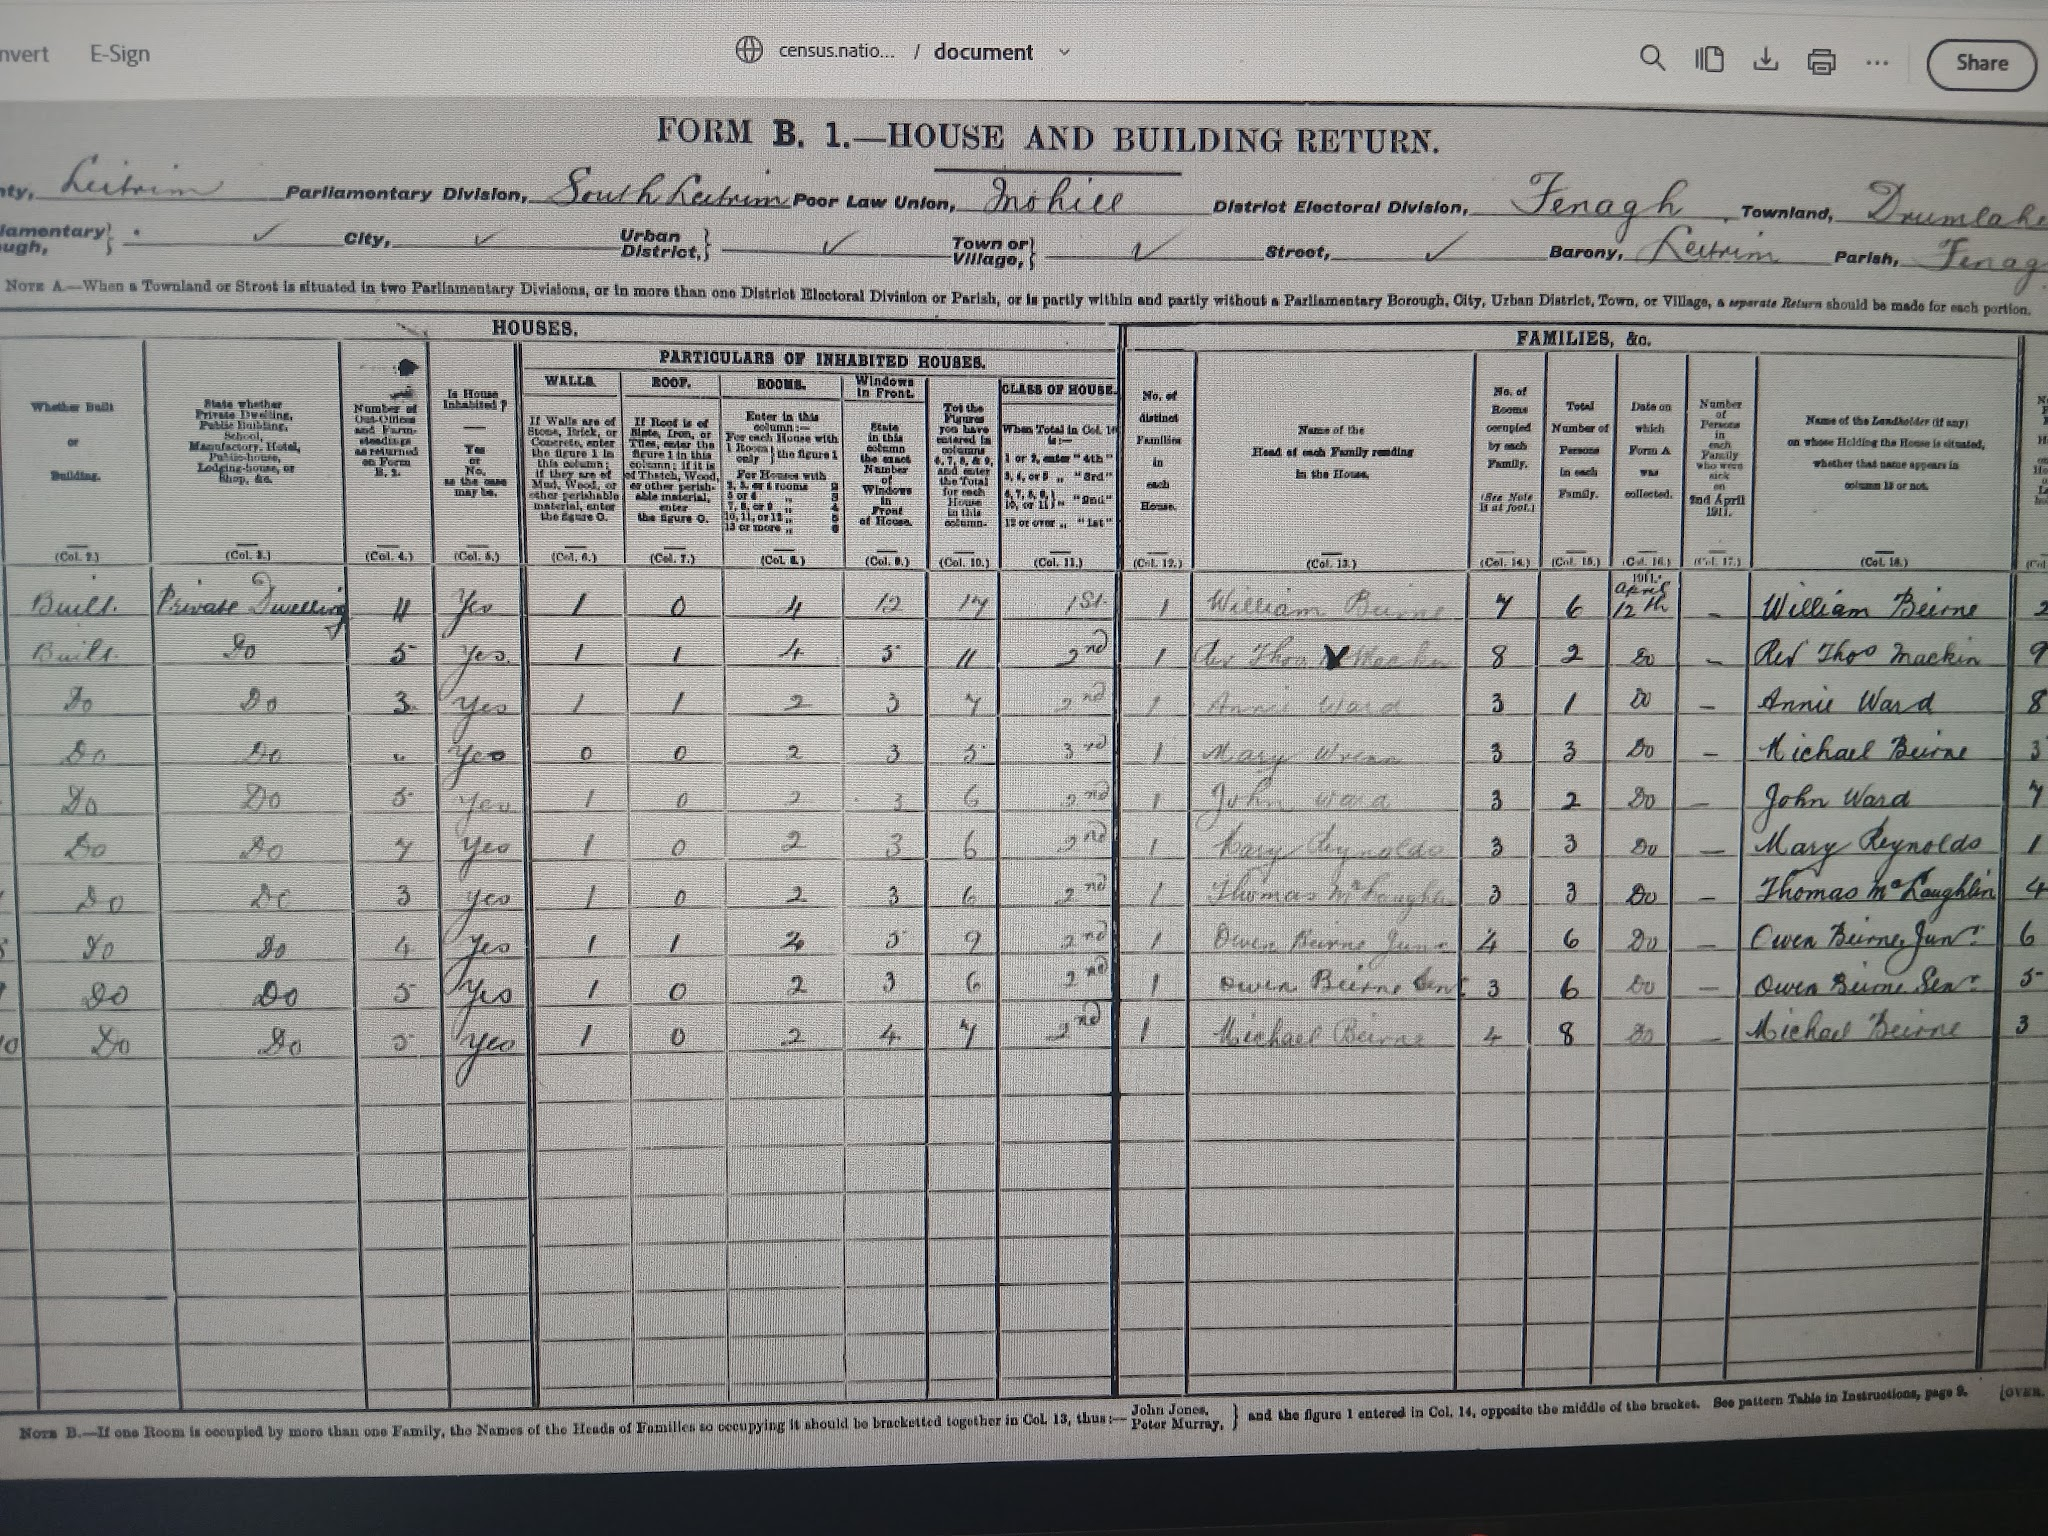 nvert E-Sign census.natio... / document Share
FORM B. 1.—HOUSE AND BUILDING RETURN.
nty, Leitrim Parliamentary Division, South Leitrim Poor Law Union, Mohill District Electoral Division, Fenagh Townland, Drumlahe
lamentary ugh, City, Urban District, Town or Village, Street, Barony, Leitrim Parish, Fenag
NOTE A.—When a Townland or Street is situated in two Parliamentary Divisions, or in more than one District Electoral Division or Parish, or is partly within and partly without a Parliamentary Borough, City, Urban District, Town, or Village, a separate Return should be made for each portion.
HOUSES. FAMILIES, &c.
PARTICULARS OF INHABITED HOUSES.
Whether Built or Building.
State whether Private Dwelling, Public Building, School, Manufactory, Hotel, Public-house, Lodging-house, or Shop, &c.
Number of Out-Offices and Farm-steadings as returned on Form B. 2.
Is House Inhabited? Yes or No. as the case may be.
WALLS.
If Walls are of Stone, Brick, or Concrete, enter the figure 1 in this column; if they are of Mud, Wood, or other perishable material, enter the figure 0.
ROOF.
If Roof is of Slate, Iron, or Tiles, enter the figure 1 in this column; if it is of Thatch, Wood, or other perishable material, enter the figure 0.
ROOMS.
Enter in this column:—
For each House with 1 Room only } the figure 1
For Houses with
2, 3, or 4 rooms 2
5 or 6 " 3
7, 8, or 9 " 4
10, 11, or 12 " 5
13 or more " 6
Windows in Front.
State in this column the exact Number of Windows in Front of House.
Tot the Figures you have entered in columns 6, 7, 8, & 9, and enter the Total for each House in this column.
CLASS OF HOUSE.
When Total in Col. 10 is:—
1 or 2, enter "4th"
3, 4, or 5 " "3rd"
6, 7, 8, 9, 10, or 11 } " "2nd"
12 or over " "1st"
No. of distinct Families in each House.
Name of the Head of each Family residing in the House.
No. of Rooms occupied by each Family. (See Note B at foot.)
Total Number of Persons in each Family.
Date on which Form A was collected.
Number of Persons in each Family who were sick on 2nd April 1911.
Name of the Landholder (if any) on whose Holding the House is situated, whether that name appears in column 13 or not.
(Col. 2.) (Col. 3.) (Col. 4.) (Col. 5.) (Col. 6.) (Col. 7.) (Col. 8.) (Col. 9.) (Col. 10.) (Col. 11.) (Col. 12.) (Col. 13.) (Col. 14.) (Col. 15.) (Col. 16.) (Col. 17.) (Col. 18.)
Built. Private Dwelling 11 Yes 1 0 4 12 17 1st. 1 William Beirne 7 6 1911. April 12th - William Beirne 2
Built. Do 5 Yes. 1 1 4 5 11 2nd 1 Rev Thos Mackin 8 2 Do - Rev Thos Mackin 9
Do Do 3 Yes 1 1 2 3 7 2nd 1 Annie Ward 3 1 Do - Annie Ward 8
Do Do Yes 0 0 2 3 5 3rd 1 Mary Wrenn 3 3 Do - Michael Beirne 3
Do Do 5 Yes 1 0 2 3 6 2nd 1 John Ward 3 2 Do - John Ward 7
Do Do 7 Yes 1 0 2 3 6 2nd 1 Mary Reynolds 3 3 Do - Mary Reynolds 1
Do Do 3 Yes 1 0 2 3 6 2nd 1 Thomas McLaughlin 3 3 Do - Thomas McLaughlin 4
Do Do 4 Yes 1 1 2 5 9 2nd 1 Owen Beirne Junr 4 6 Do - Owen Beirne, Junr. 6
Do Do 5 Yes 1 0 2 3 6 2nd 1 Owen Beirne Senr 3 6 Do - Owen Beirne Senr. 5
10 Do Do 5 Yes 1 0 2 4 7 2nd 1 Michael Beirne 4 8 Do - Michael Beirne 3
NOTE B.—If one Room is occupied by more than one Family, the Names of the Heads of Families so occupying it should be bracketted together in Col. 13, thus:— John Jones, Peter Murray, } and the figure 1 entered in Col. 14, opposite the middle of the bracket. See pattern Table in Instructions, page 9. [OVER.